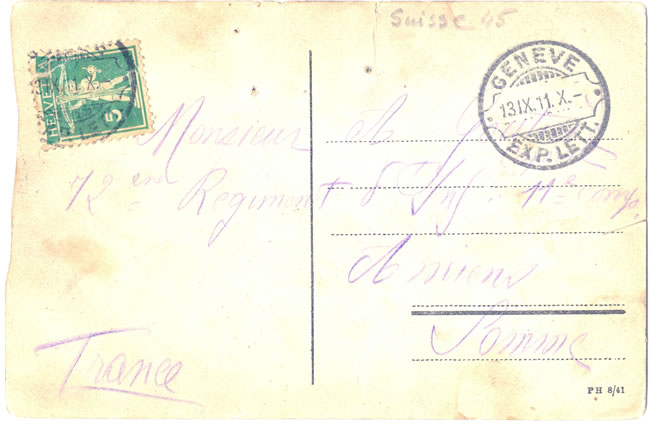 Suisse 45
HELVETIA
5
GENÈVE
13.IX.11.X.-
EXP. LETT.
Monsieur A
72 ème Régiment d'Inf. 11e Comp.
Amiens
Somme
France
PH 8/41